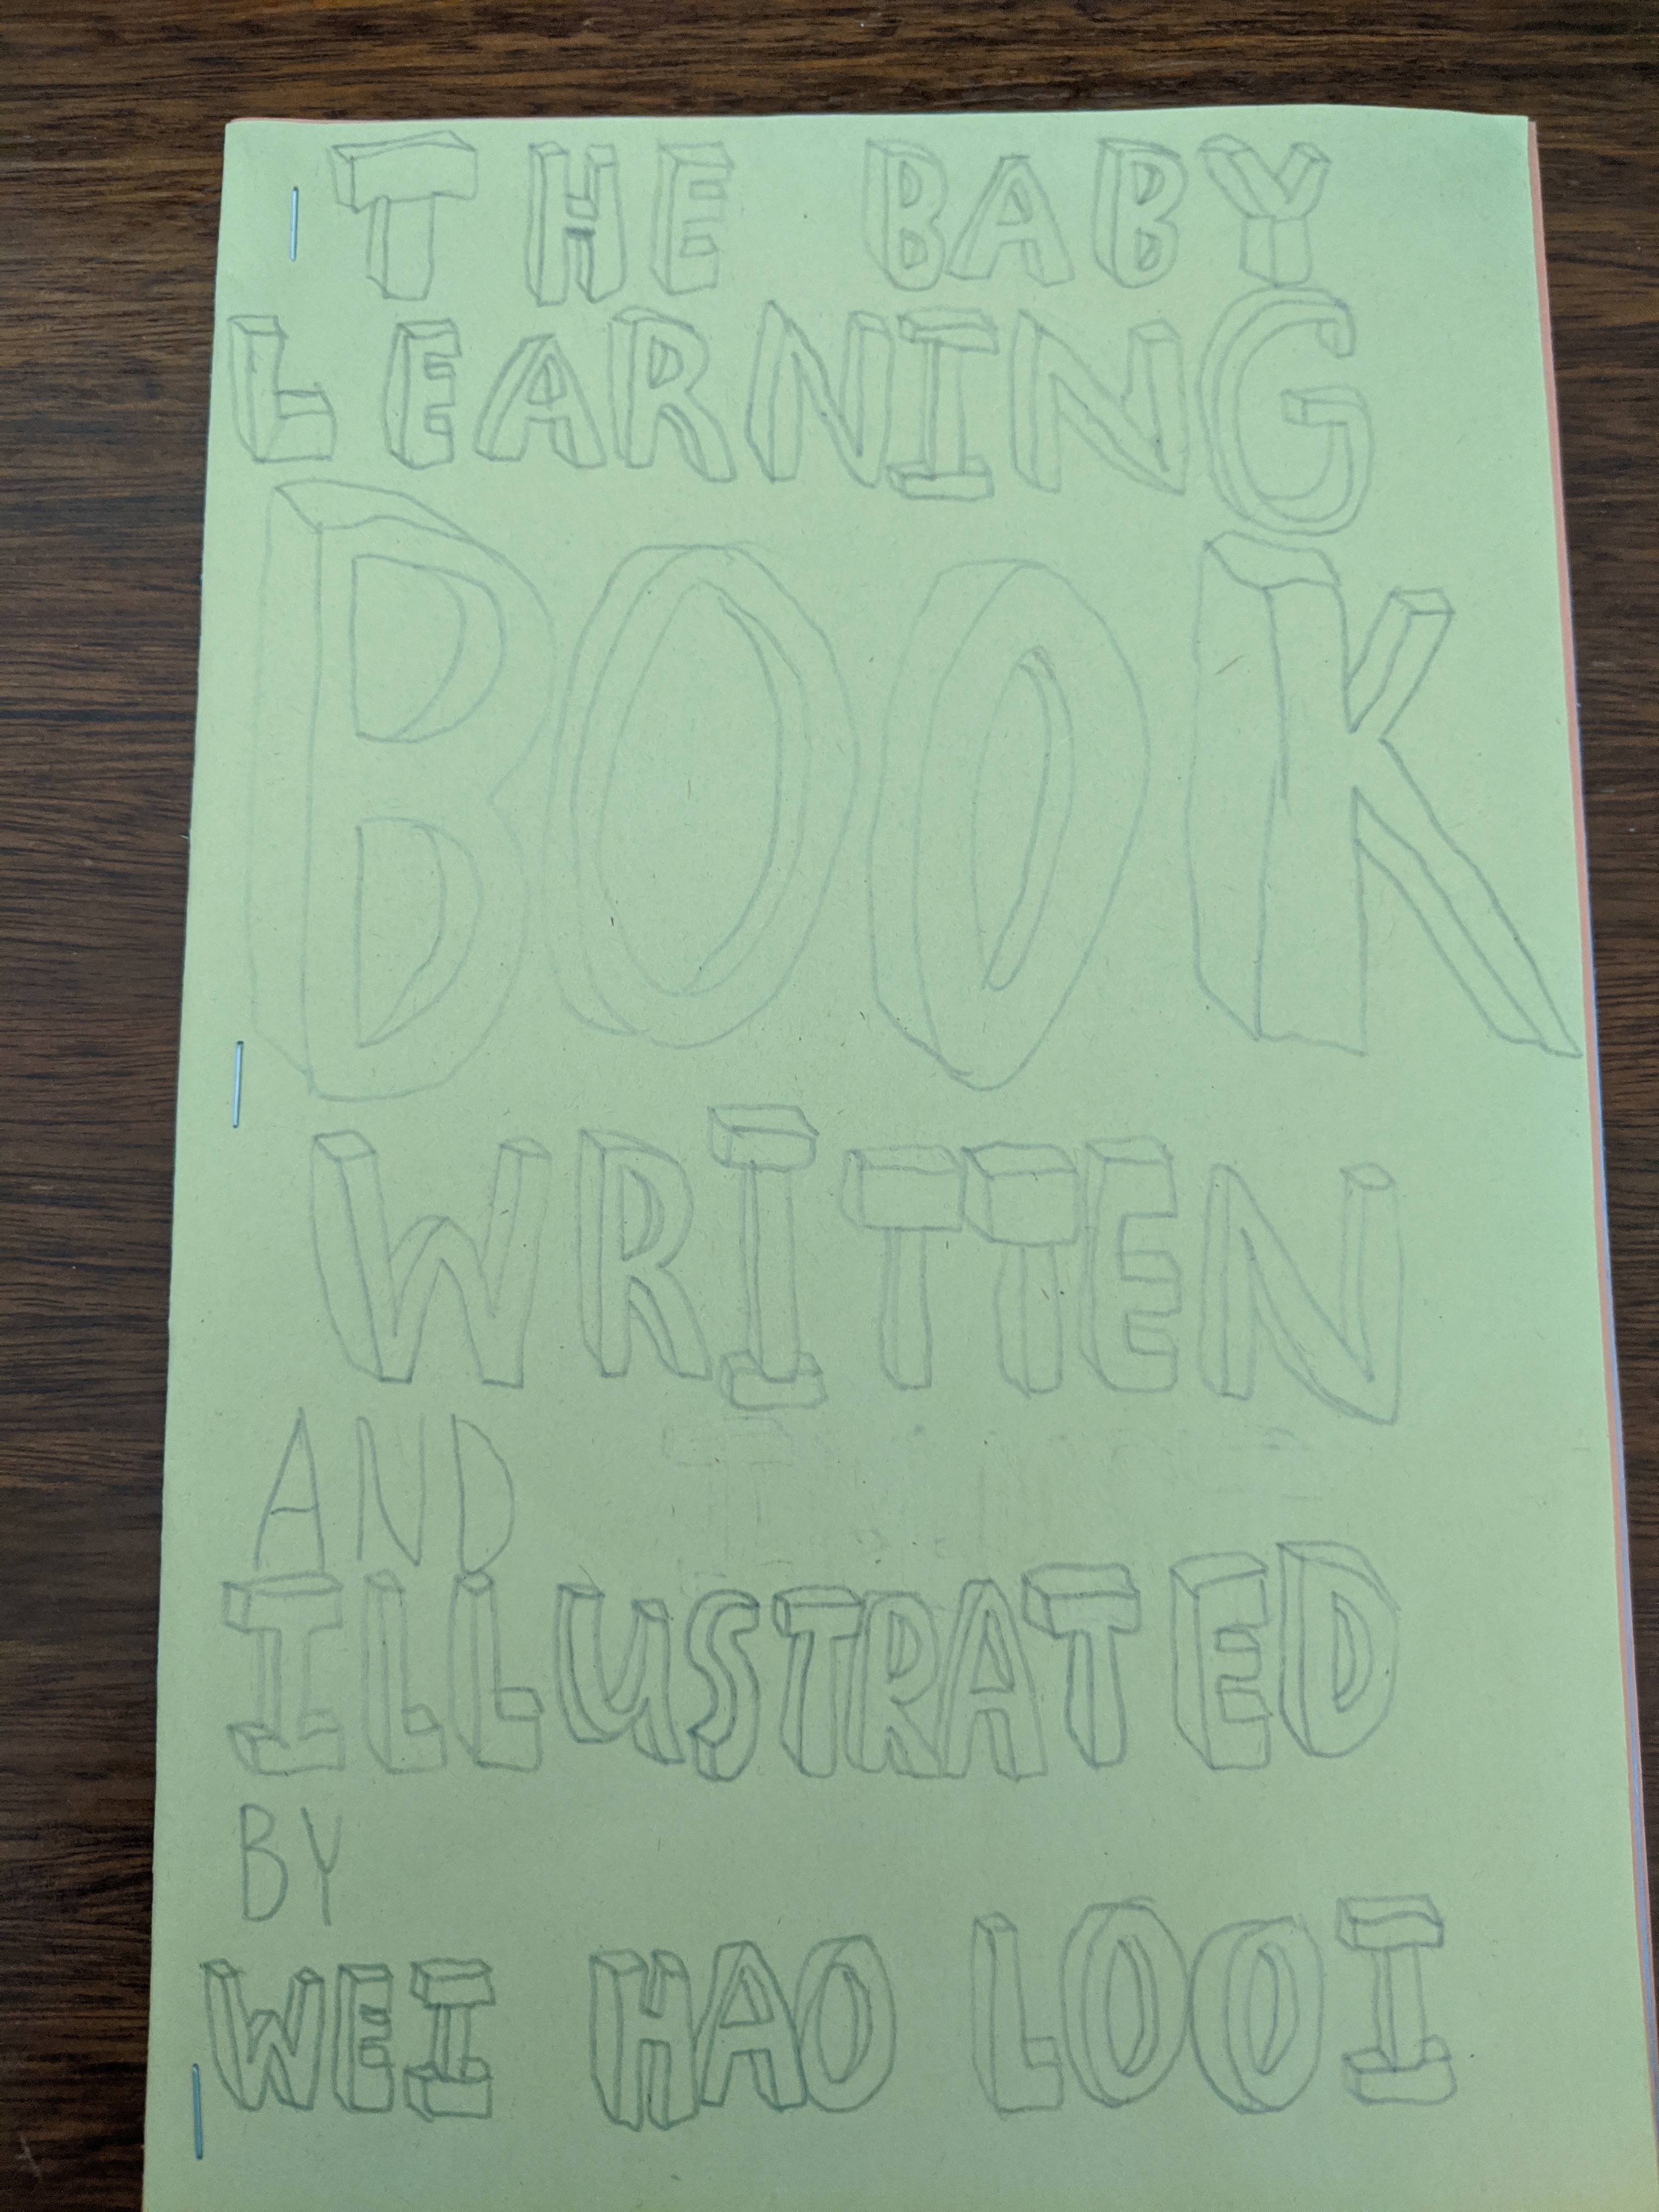 THE BABY
LEARNING
BOOK
WRITTEN
AND
ILLUSTRATED
BY
WEI HAO LOOI